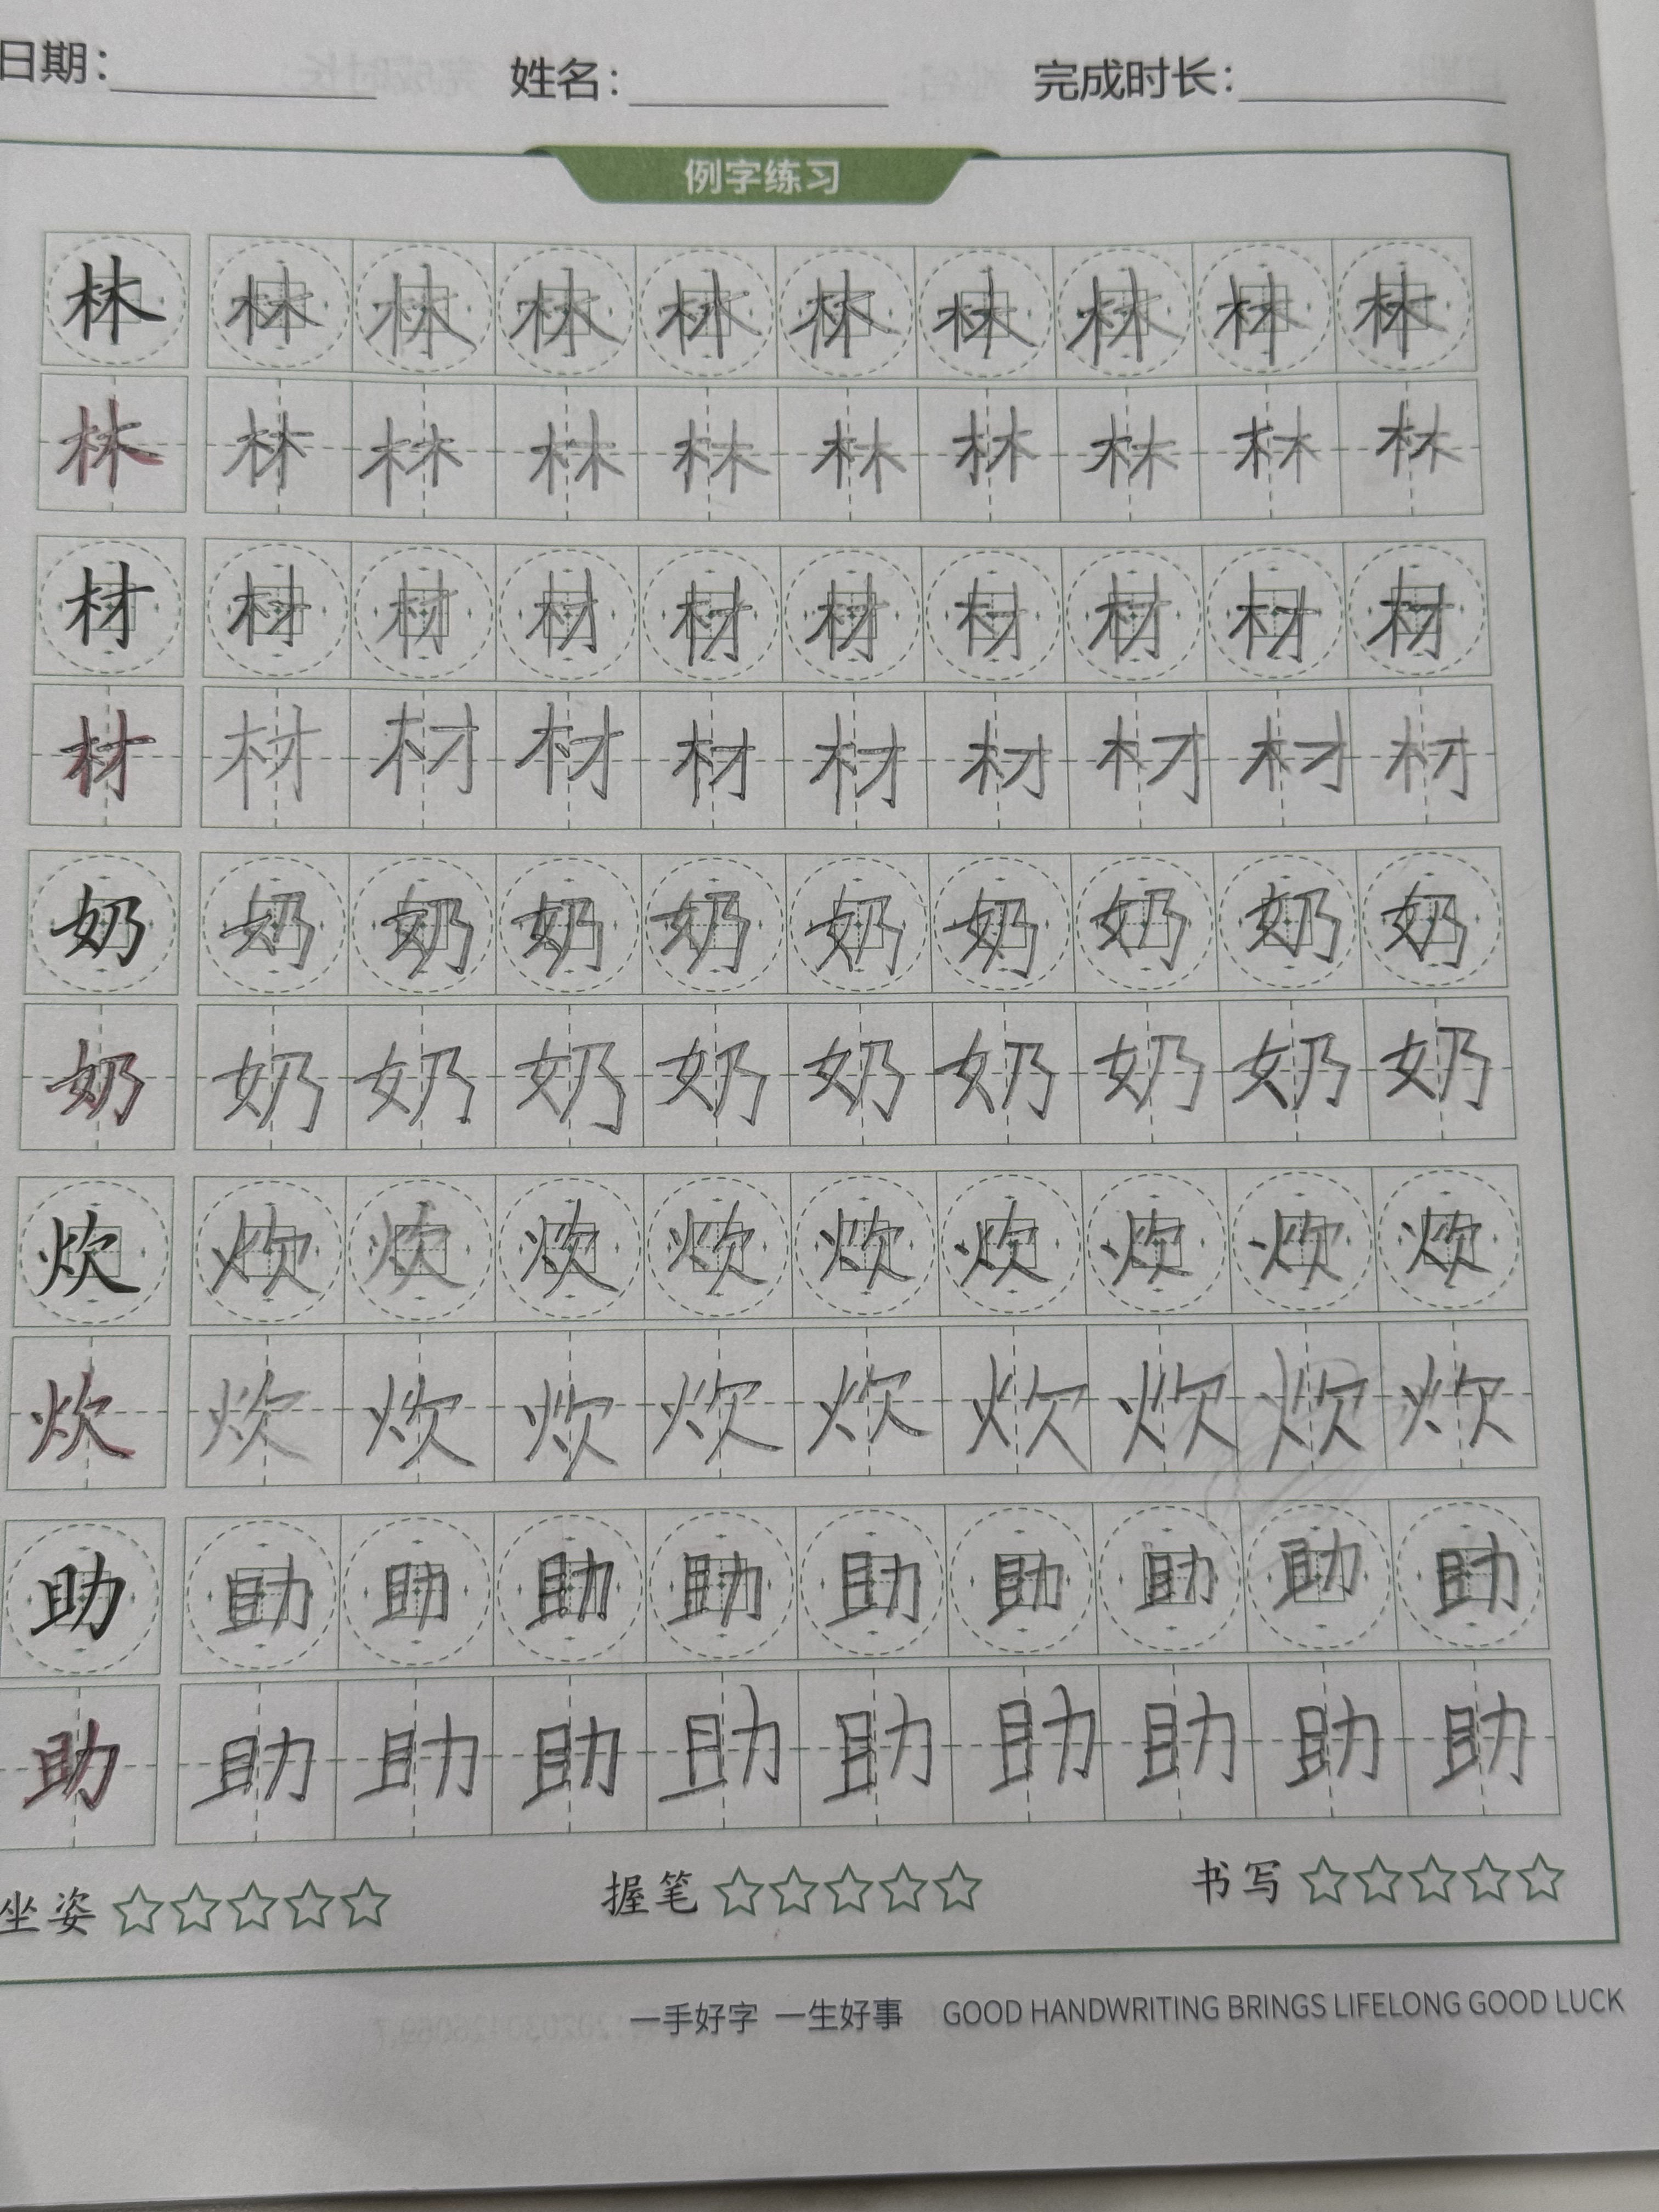 日期：
姓名：
完成时长：
例字练习
林 林 林 林 林 林 林 林 林 林
林 林 林 林 林 林 林 林 林 林
材 材 材 材 材 材 材 材 材 材
材 材 材 材 材 材 材 材 材 材
奶 奶 奶 奶 奶 奶 奶 奶 奶 奶
奶 奶 奶 奶 奶 奶 奶 奶 奶 奶
炊 炊 炊 炊 炊 炊 炊 炊 炊 炊
炊 炊 炊 炊 炊 炊 炊 炊 炊 炊
助 助 助 助 助 助 助 助 助 助
助 助 助 助 助 助 助 助 助 助
坐姿 ☆☆☆☆☆
握笔 ☆☆☆☆☆
书写 ☆☆☆☆☆
一手好字 一生好事 GOOD HANDWRITING BRINGS LIFELONG GOOD LUCK